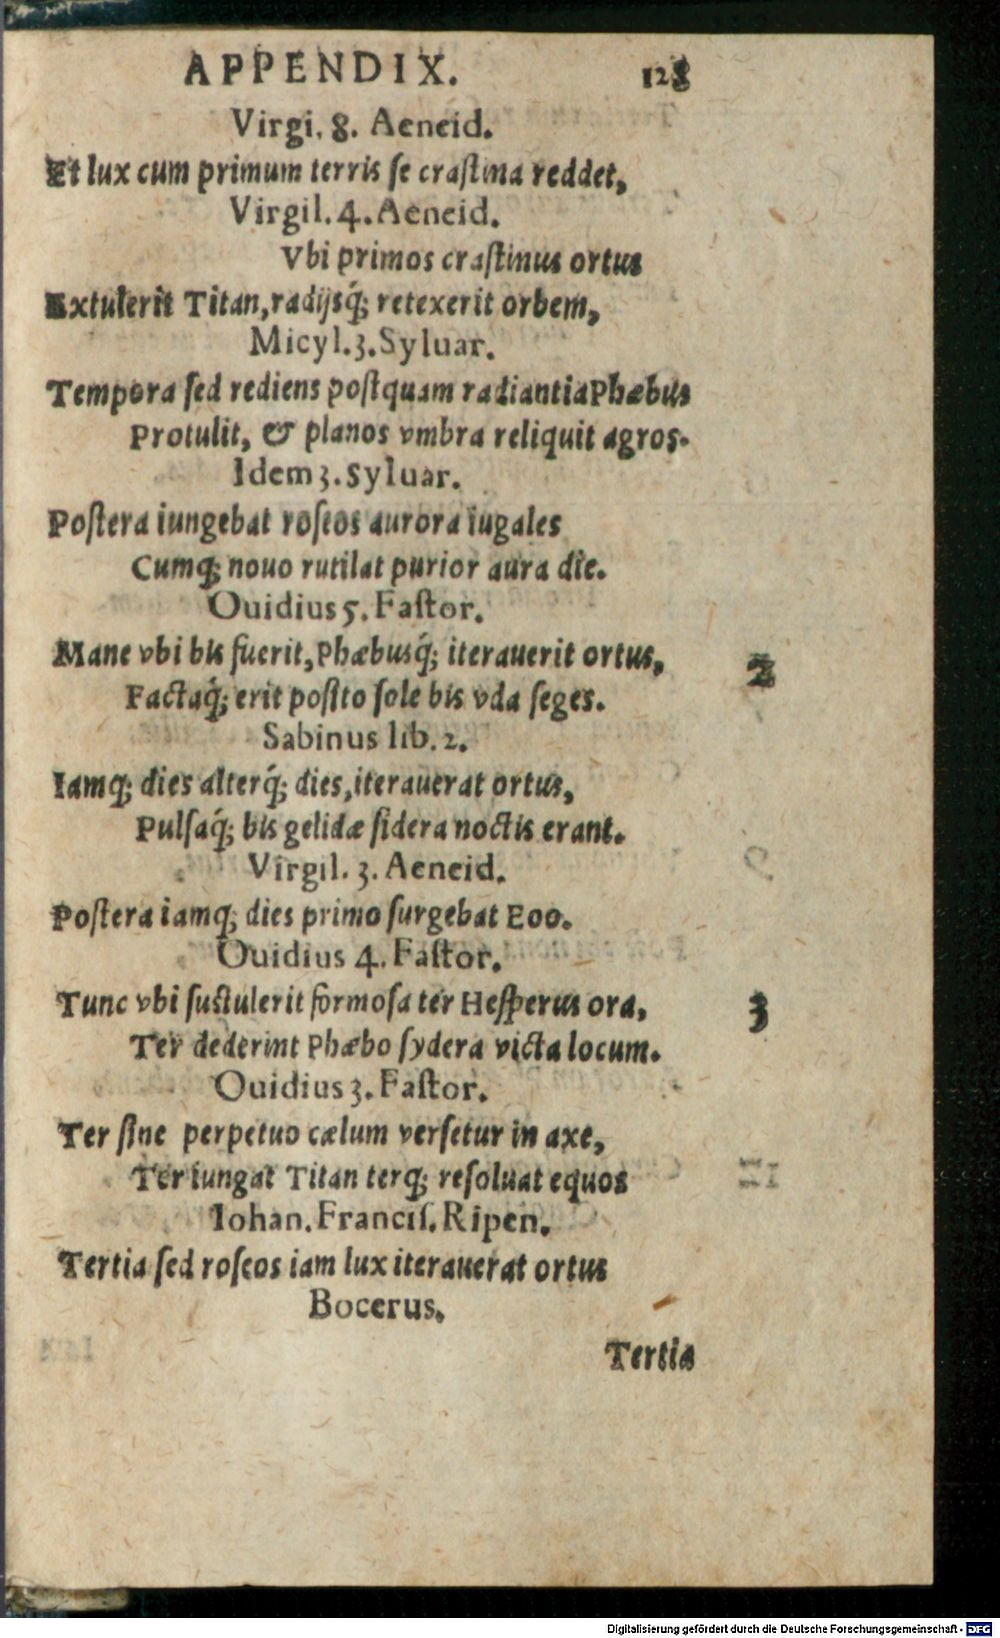 APPENDIX. 128
Virgi. 8. Aeneid.
Et lux cum primum terris se crastina reddet,
Virgil. 4. Aeneid.
Vbi primos crastinus ortus
Extulerit Titan, radijsq́; retexerit orbem,
Micyl. 3. Syluar.
Tempora sed rediens postquam radiantia Phæbus
Protulit, & planos vmbra reliquit agros.
Idem 3. Syluar.
Postera iungebat roseos aurora iugales
Cumq; nouo rutilat purior aura die.
Ouidius 5. Fastor.
Mane vbi bis fuerit, Phæbusq́; iterauerit ortus, 2
Factaq́; erit posito sole bis vda seges.
Sabinus lib. 2.
Iamq; dies alterq́; dies, iterauerat ortus,
Pulsaq́; bis gelidæ sidera noctis erant.
Virgil. 3. Aeneid.
Postera iamq; dies primo surgebat Eoo.
Ouidius 4. Fastor.
Tunc vbi sustulerit formosa ter Hesperus ora, 3
Ter dederint Phæbo sydera victa locum.
Ouidius 3. Fastor.
Ter sine perpetuo cælum versetur in axe,
Ter iungat Titan terq; resoluat equos
Iohan. Francis. Ripen.
Tertia sed roseos iam lux iterauerat ortus
Bocerus.
Tertia
Digitalisierung gefördert durch die Deutsche Forschungsgemeinschaft - DFG